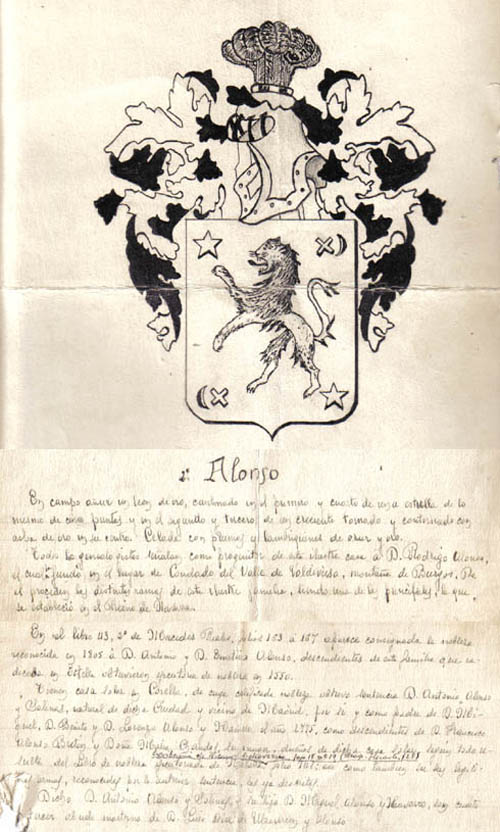 2º Alonso
En campo azur un leon de oro, cantonado en el primero y cuarto de una estrella de lo
mismo de cinco puntas y en el segundo y tercero de un creciente tornado y contornado con
aspa de oro en su centro. Celada con plumas y lambrequines de azur y oro.
Todos los genealogistas señalan como progenitor de esta ilustre casa a D. Rodrigo Alonso,
el cual fundó en el lugar de Condado del Valle de Valdivieso, montaña de Burgos. De
el proceden las distintas ramas de esta ilustre familia, siendo una de las principales, la que
se estableció en el Reino de Navarra.
En el libro 43, 2º de Mercedes Reales, folios 153 á 157 aparece consignada la nobleza
reconocida en 1805 á D. Antonio y D. Emeterio Alonso, descendientes de esta familia que ra-
dicada en Estella obtuvieron ejecutoria de nobleza en 1550.
Tienen casa solar en Corella, de cuya calificada nobleza obtuvo sentencia D. Antonio Alonso
y Salinas, natural de dicha Ciudad y vecino de Madrid, por si y como padre de D. Mi-
guel, D. Benito y D. Lorenzo Alonso y Navarro, el año 1775, como descendientes de D. Francisco
Alonso Breton y Doña Maria dueños de dicha casa solar, segun todo re-
sulta del Libro de nobleza como tambien su ley legiti-
armas, reconocidas por la anterior sentencia, las ya descritas.
Dicho D. Antonio Alonso y Salinas y su hijo D. Miguel Alonso y Navarro, hoy cuarto
D. Luis Diez de Ulzurrun y Alonso